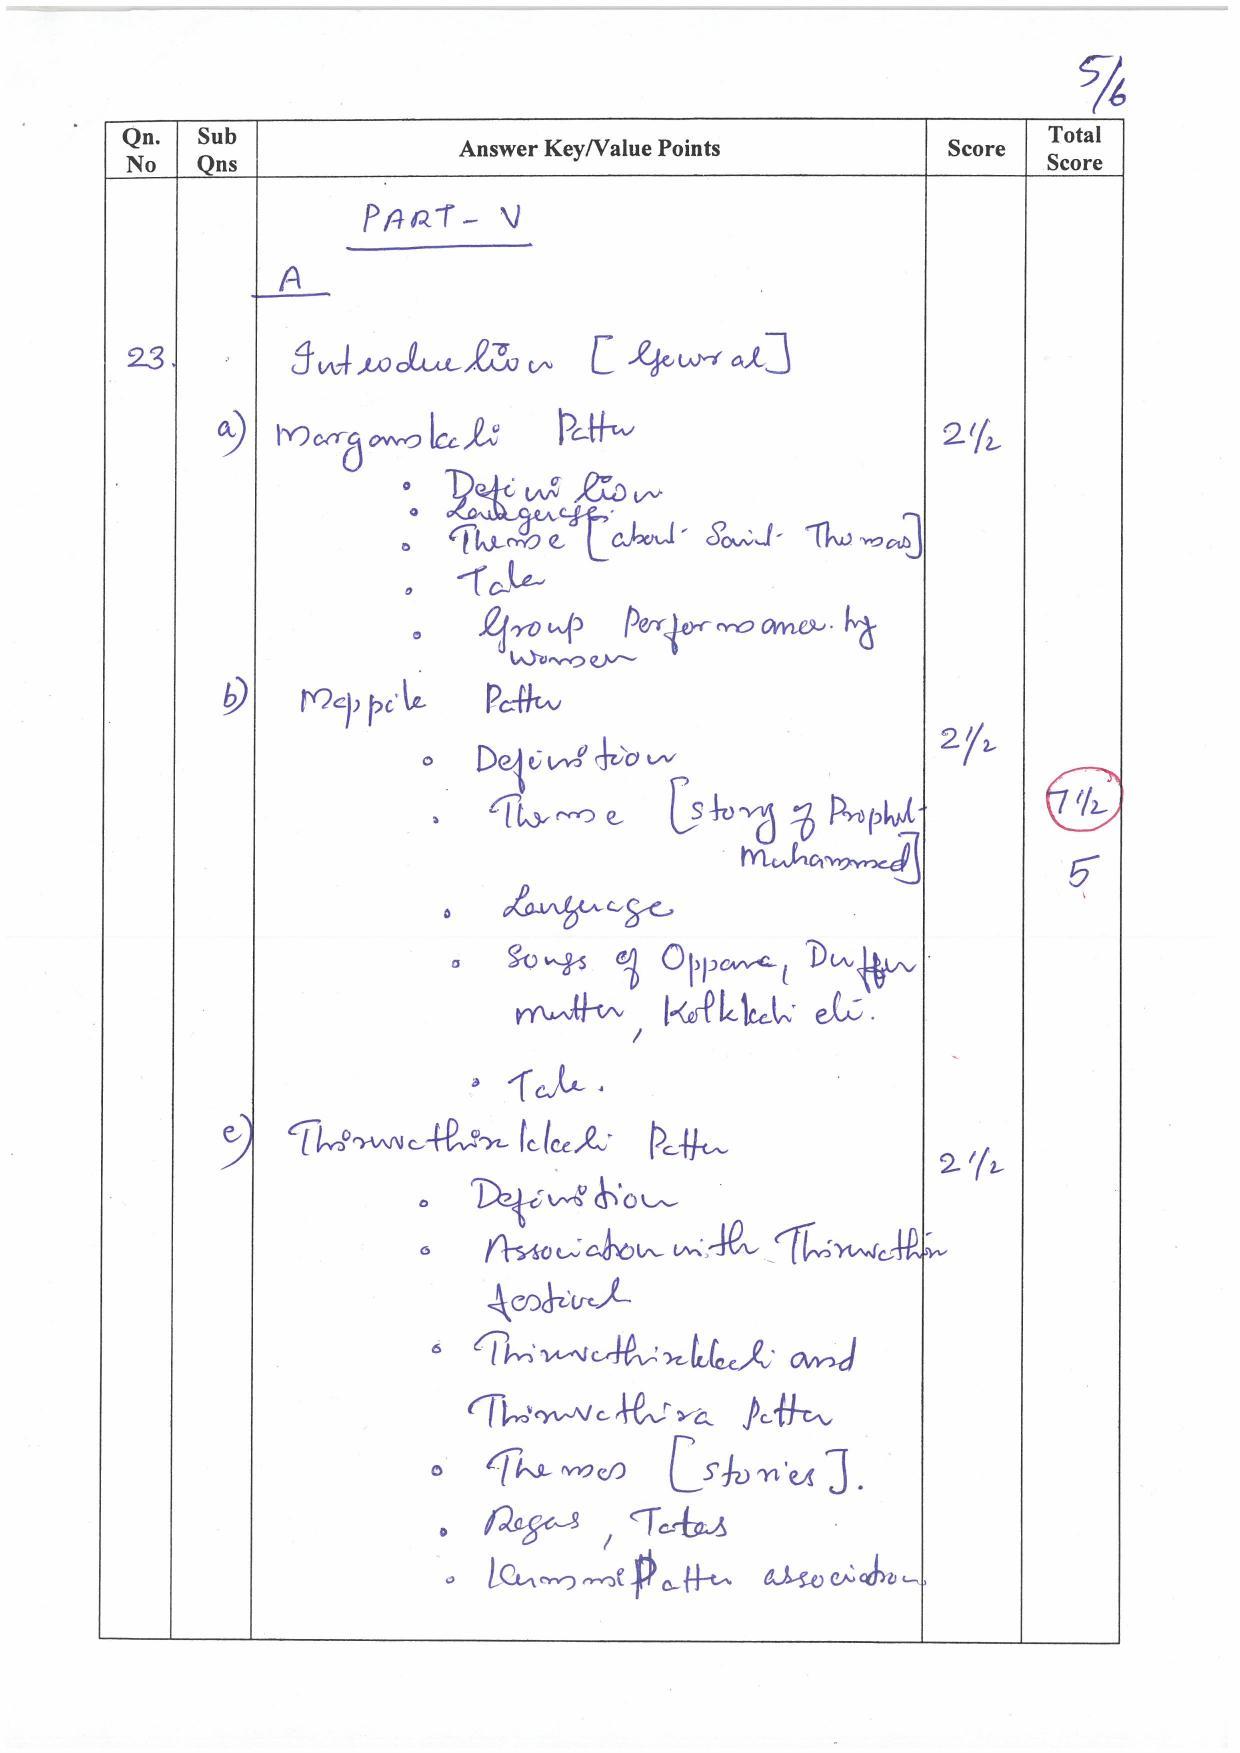 5/6
Qn. No Sub Qns Answer Key/Value Points Score Total Score
PART - V
A
23. Introduction [General]
a) Margamkali Pattu 2 1/2
• Definition
• Language
• Theme [about Saint Thomas]
• Tala
• Group Performance by
women
b) Mappila Pattu
2 1/2
• Definition
• Theme [story of Prophet
Muhammed]
7 1/2
5
• Language
• Songs of Oppana, Duffu
muttu, Kolkkali etc.
• Tala.
c) Thiruvathirakkali Pattu
2 1/2
• Definition
• Association with Thiruvathira
festival
• Thiruvathirakkali and
Thiruvathira Pattu
• Themes [stories].
• Ragas, Talas
• Kummi Pattu association